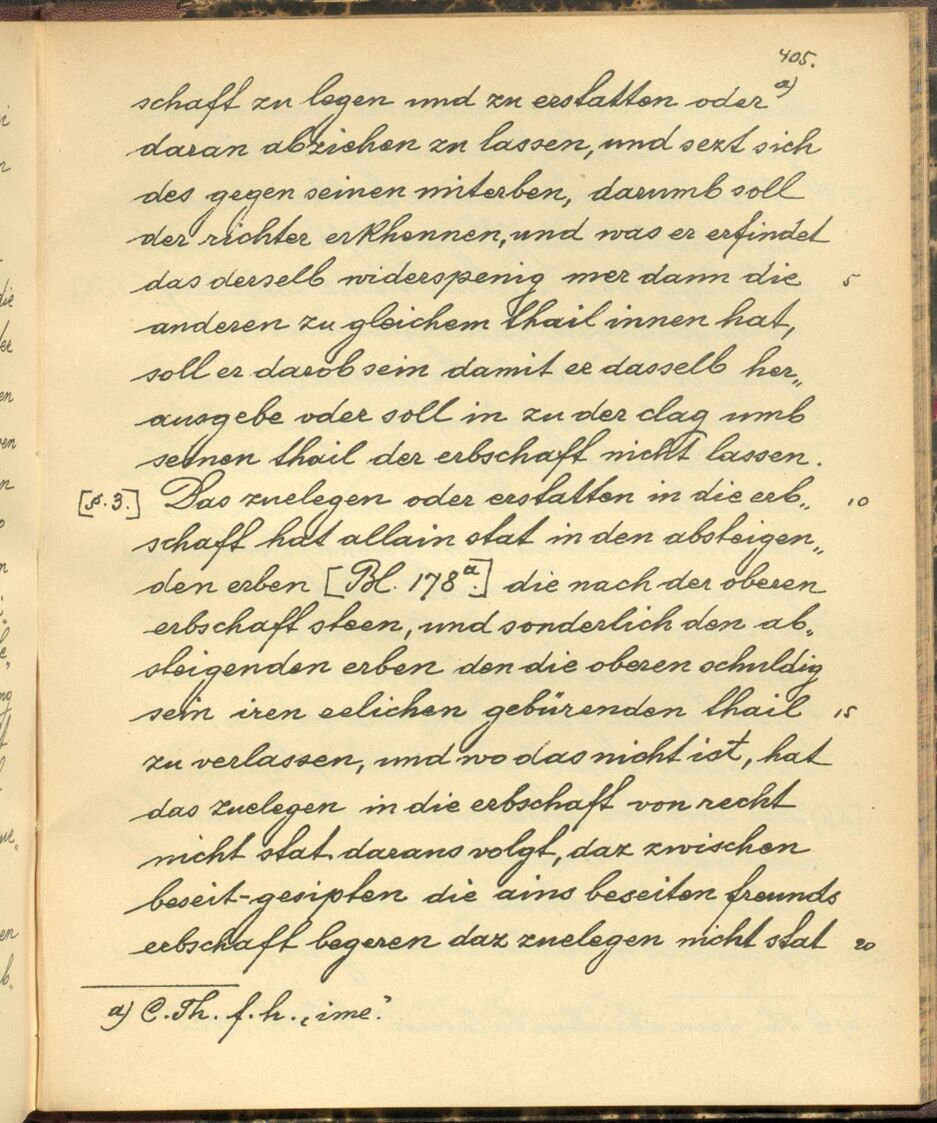 405.
schaft zu legen und zu erstatten oder a)
daran abziehen zu lassen, und sezt sich
des gegen seinen miterben, darumb soll
der richter erkhennen, und was er erfindet
das derselb widerspenig mer dann die 5
anderen zu gleichem thail innen hat,
soll er darob sein damit er dasselb her„
ausgebe oder soll in zu der clag umb
seinen thail der erbschaft nicht lassen.
[§. 3.] Das zuelegen oder erstatten in die erb„ 10
schaft hat allain stat in den absteigen„
den erben [Bl. 178a.] die nach der oberen
erbschaft steen, und sonderlich den ab„
steigenden erben den die oberen schuldig
sein iren eelichen gebürenden thail 15
zu verlassen, und wo das nicht ist, hat
das zuelegen in die erbschaft von recht
nicht stat. daraus volgt, daz zwischen
beseit-gesipten die ains beseiten freunds
erbschaft begeren daz zuelegen nicht stat 20
a) C. Th. f. h. „ime“.